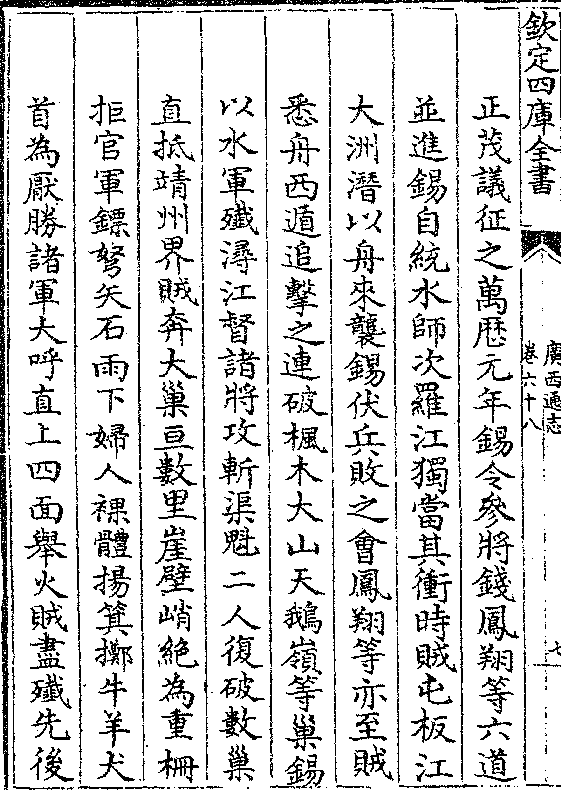 欽定四庫全書
廣西通志
卷六十八
七
正茂議征之萬歷元年錫令參將錢鳳翔等六道
並進錫自統水師次羅江獨當其衝時賊屯板江
大洲潛以舟來襲錫伏兵敗之會鳳翔等亦至賊
悉舟西遁追擊之連破楓木大山天鵝嶺等巢錫
以水軍殲潯江督諸將攻斬渠魁二人復破數巢
直抵靖州界賊奔大巢亘數里崖壁峭絶為重柵
拒官軍鏢弩矢石雨下婦人裸體揚箕擲牛羊犬
首為厭勝諸軍大呼直上四面舉火賊盡殲先後